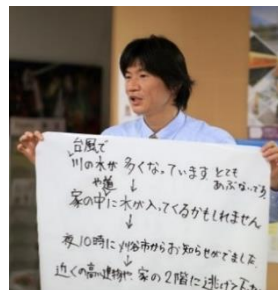 台風で
川の水が多くなっています。とても
あぶないです。
↓
家の中に水が入ってくるかもしれません
↓
夜10時に刈谷市からお知らせがでました
近くの高い建物や、家の2階に逃げて